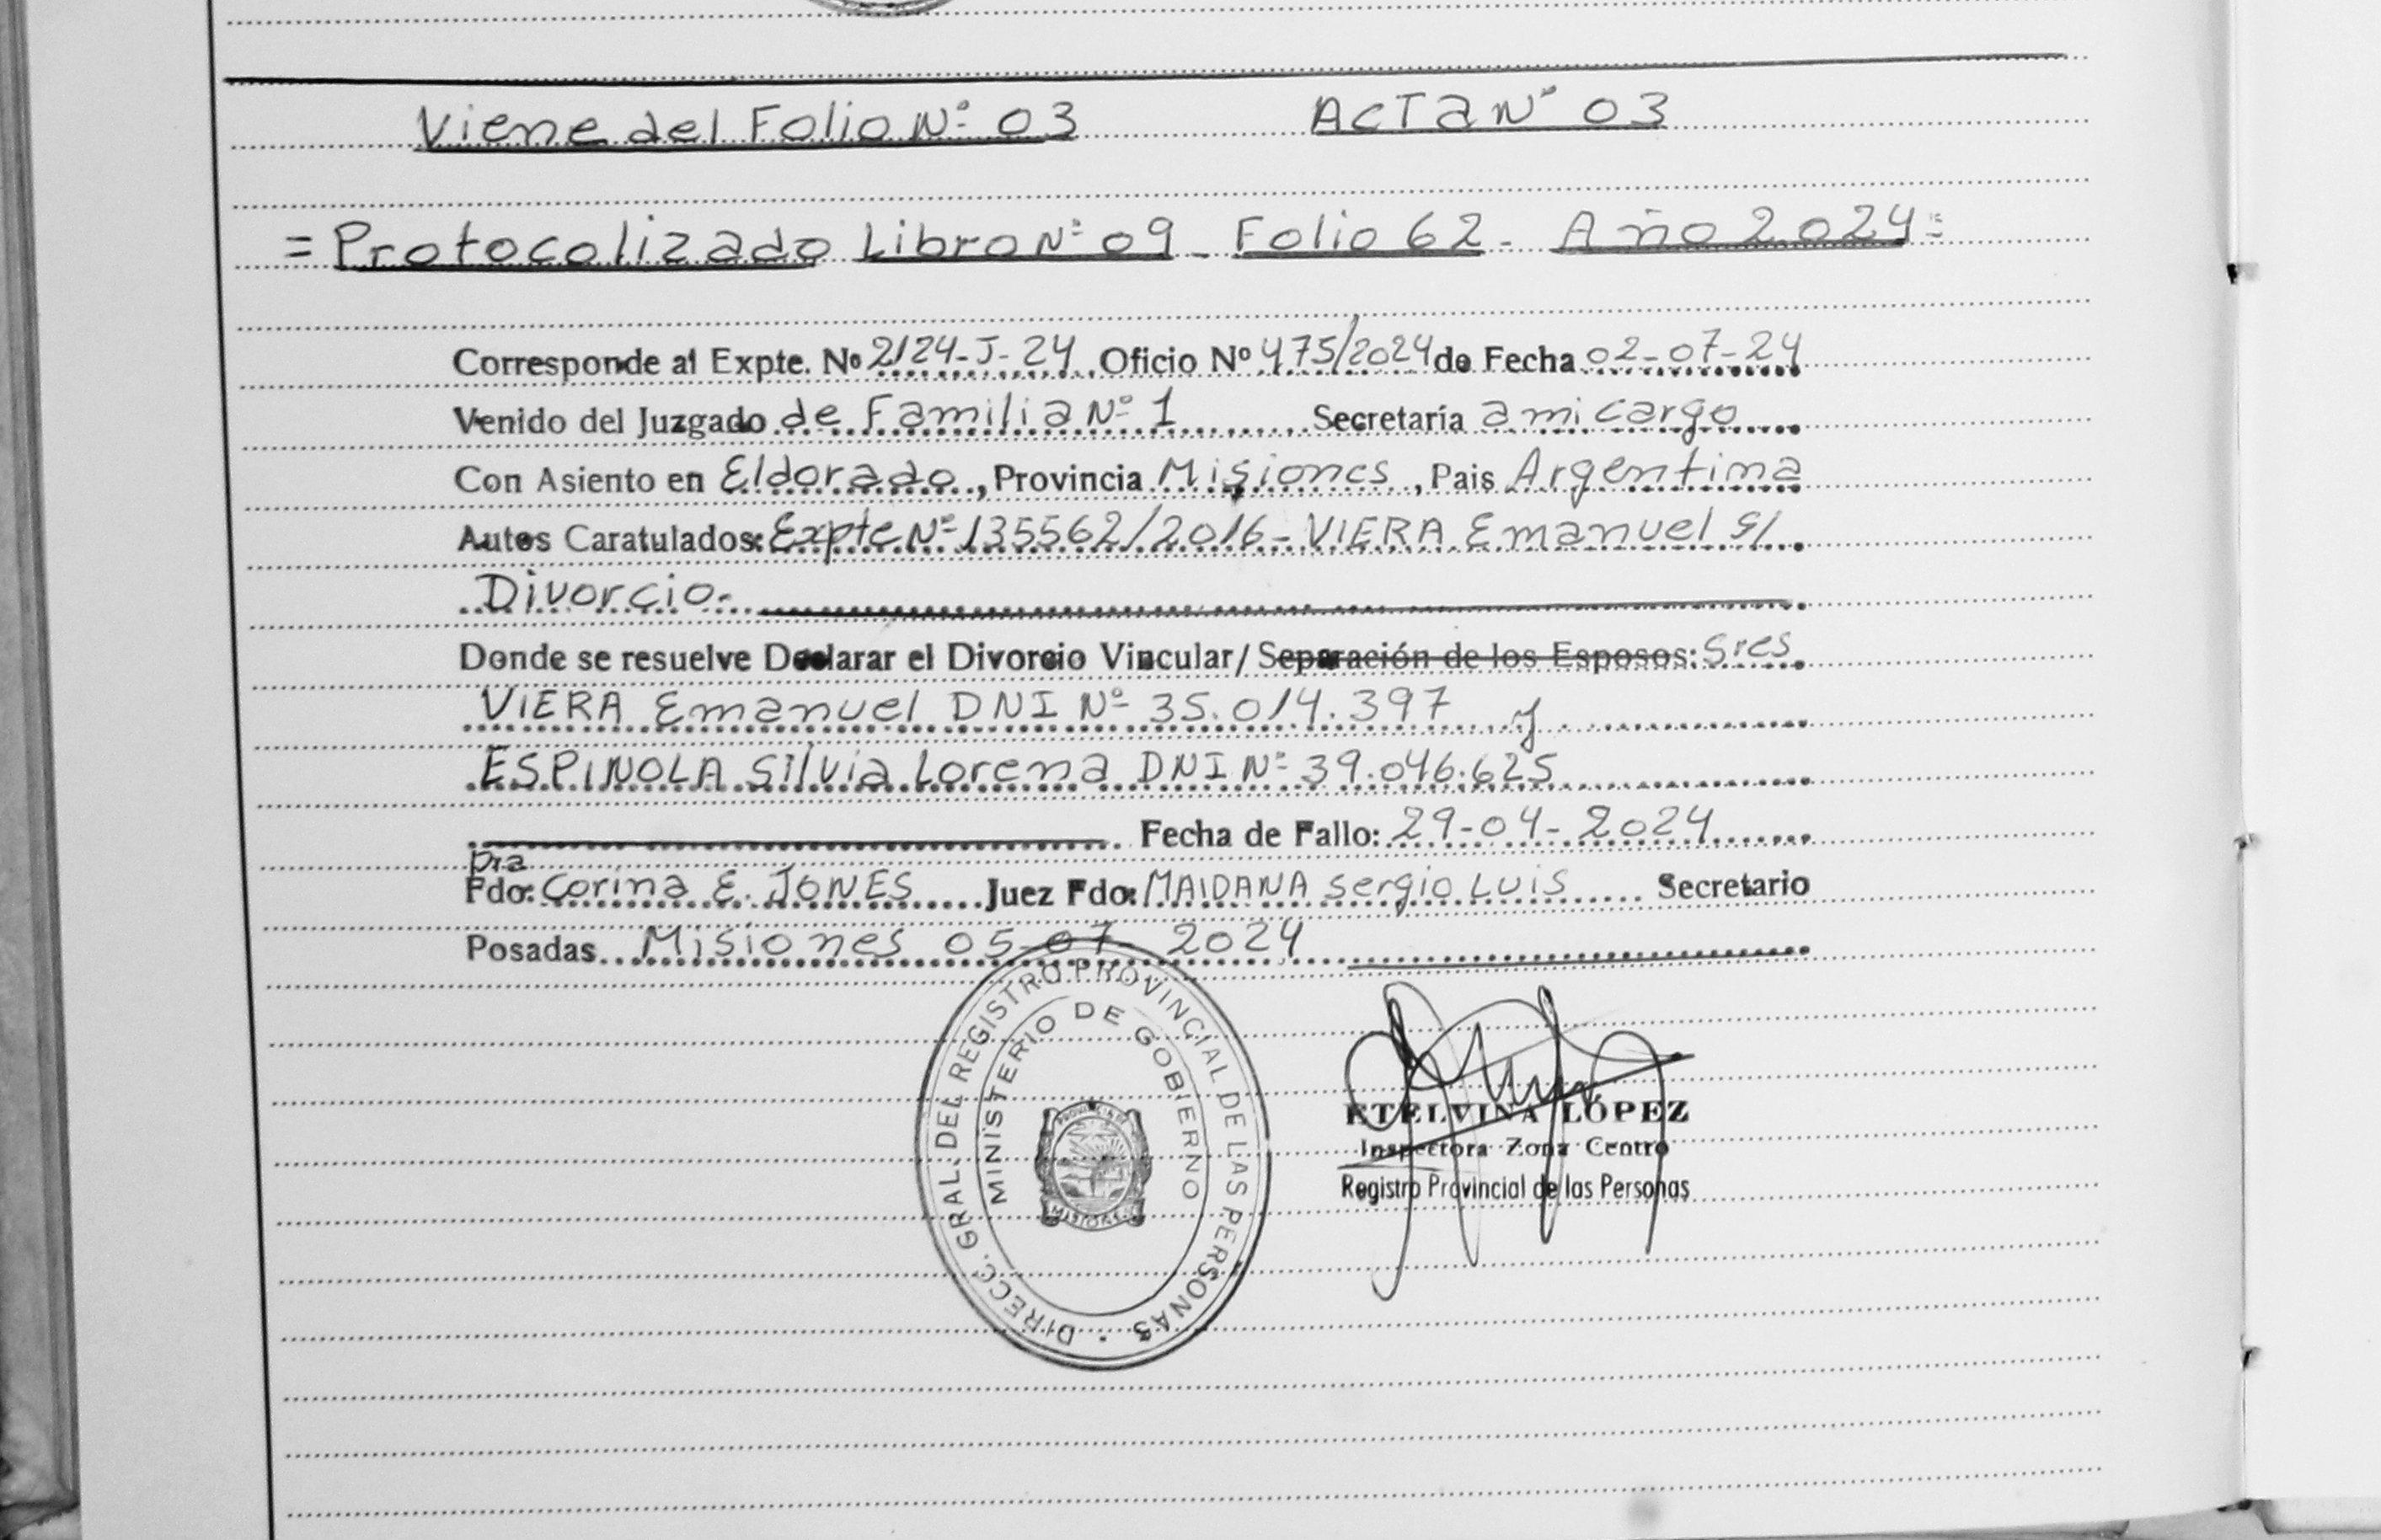 Viene del Folio Nº 03 ACTA Nº 03
= Protocolizado Libro Nº 09 - Folio 62 - Año 2024 =
Corresponde al Expte. Nº 2124-J-24 Oficio Nº 475/2024 de Fecha 02-07-24
Venido del Juzgado de Familia Nº 1 Secretaría a mi cargo
Con Asiento en Eldorado, Provincia Misiones, Pais Argentina
Autos Caratulados: Expte Nº 135562/2016 - VIERA Emanuel s/
Divorcio.
Donde se resuelve Declarar el Divorcio Vincular / Separación de los Esposos: Sres
VIERA Emanuel DNI Nº 35.014.397 y
ESPINOLA Silvia Lorena DNI Nº 39.046.625
Fecha de Fallo: 29-04-2024
Dra
Fdo: Corina E. JONES Juez Fdo: MAIDANA Sergio Luis Secretario
Posadas Misiones 05-07-2024
DIRECC. GRAL. DEL REGISTRO PROVINCIAL DE LAS PERSONAS
MINISTERIO DE GOBIERNO
MISIONES
ETELVINA LÓPEZ
Inspectora Zona Centro
Registro Provincial de las Personas